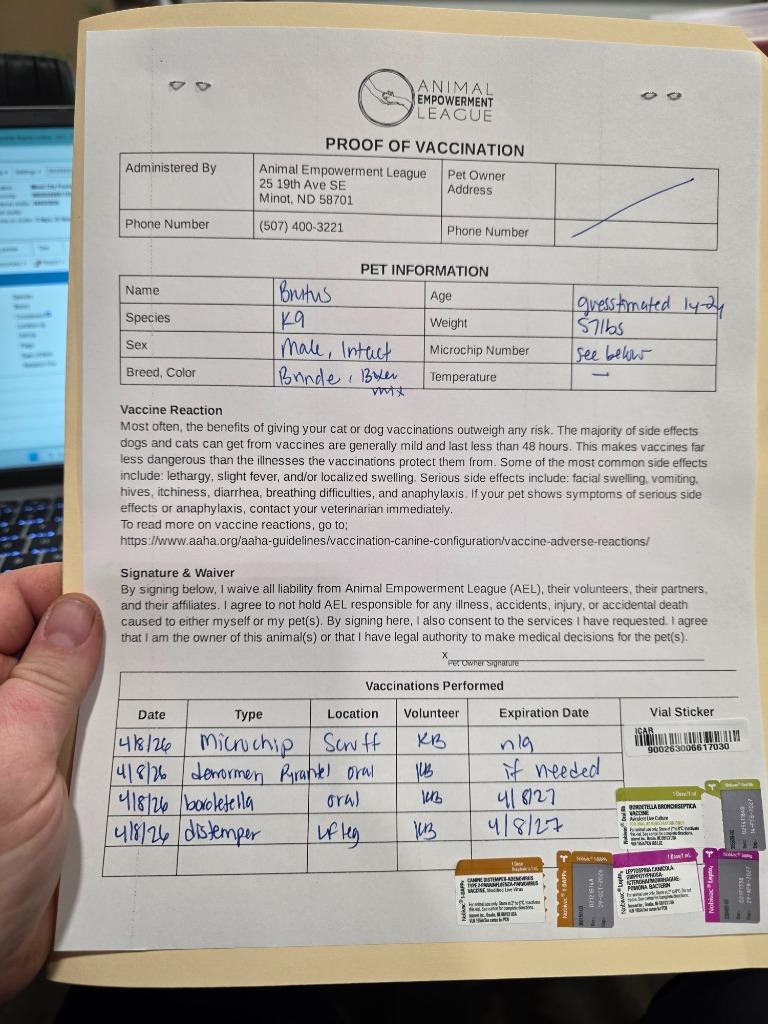 ANIMAL
EMPOWERMENT
LEAGUE
PROOF OF VACCINATION
Administered By
Animal Empowerment League
25 19th Ave SE
Minot, ND 58701
Pet Owner
Address
Phone Number
(507) 400-3221
Phone Number
PET INFORMATION
Name
Brutus
Age
guesstimated 1y-2y
Species
K9
Weight
57lbs
Sex
Male, Intact
Microchip Number
see below
Breed, Color
Brindle, Boxer
mix
Temperature
—
Vaccine Reaction
Most often, the benefits of giving your cat or dog vaccinations outweigh any risk. The majority of side effects
dogs and cats can get from vaccines are generally mild and last less than 48 hours. This makes vaccines far
less dangerous than the illnesses the vaccinations protect them from. Some of the most common side effects
include: lethargy, slight fever, and/or localized swelling. Serious side effects include: facial swelling, vomiting,
hives, itchiness, diarrhea, breathing difficulties, and anaphylaxis. If your pet shows symptoms of serious side
effects or anaphylaxis, contact your veterinarian immediately.
To read more on vaccine reactions, go to;
https://www.aaha.org/aaha-guidelines/vaccination-canine-configuration/vaccine-adverse-reactions/
Signature & Waiver
By signing below, I waive all liability from Animal Empowerment League (AEL), their volunteers, their partners,
and their affiliates. I agree to not hold AEL responsible for any illness, accidents, injury, or accidental death
caused to either myself or my pet(s). By signing here, I also consent to the services I have requested. I agree
that I am the owner of this animal(s) or that I have legal authority to make medical decisions for the pet(s).
x
Pet Owner Signature
Vaccinations Performed
Date Type Location Volunteer Expiration Date Vial Sticker
4/8/26 Microchip Scruff KB n/a
ICAR
900263006617030
4/8/26 dewormer Pyrantel oral KB if needed
4/8/26 bordetella oral KB 4/8/27
4/8/26 distemper LF leg KB 4/8/27
1 Dose/1 mL
BORDETELLA BRONCHISEPTICA
VACCINE
Avirulent Live Culture
CANINE DISTEMPER-ADENOVIRUS
TYPE 2-PARAINFLUENZA-PARVOVIRUS
VACCINE, Modified Live Virus
Nobivac 1-DAPPv
1 Dose/1 mL
LEPTOSPIRA CANICOLA-
GRIPPOTYPHOSA-
ICTEROHAEMORRHAGIAE-
POMONA BACTERIN
Nobivac Lepto4